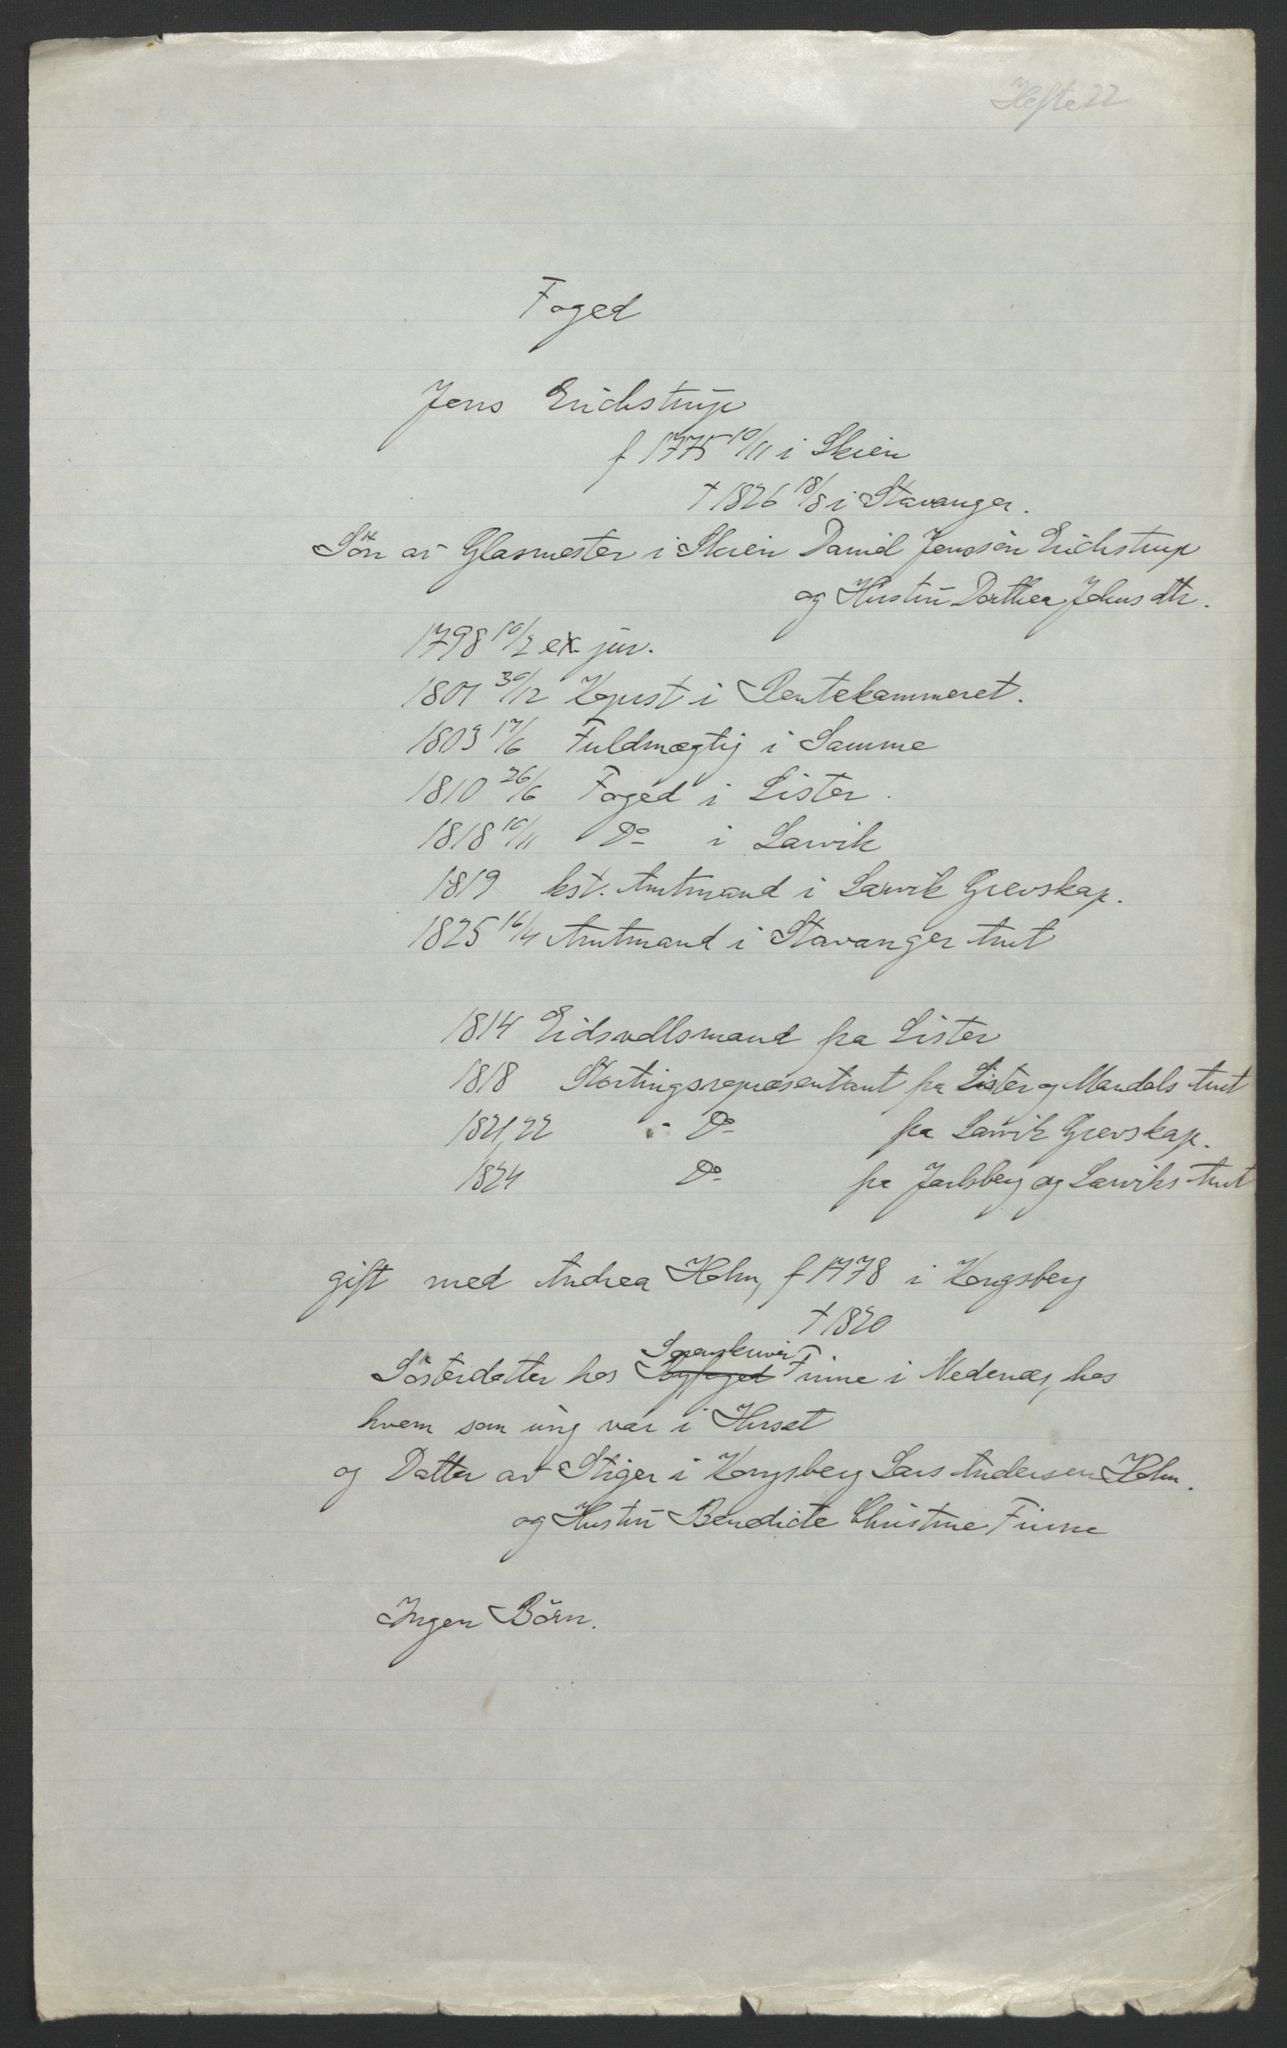 Hefte 22
Foged
Jens Erichstrup
f 1775 10/11 i Skien
† 1826 18/8 i Stavanger.
Sön av Glasmester i Skien Daniel Jenssön Erichstrup
og Hustru Dorthea Johnsdtr.
1798 10/2 ex jur.
1801 30/12 Kopist i Rentekammeret.
1803 17/6 Fuldmægtig i Samme
1810 26/6 Foged i Lister.
1818 10/11 Do i Larvik
1819 kst. Amtmand i Larvik Grevskap.
1825 16/4 Amtmand i Stavanger Amt
1814 Eidsvollsmand fra Lister
1818 Stortingsrepræsentant fra Lister og Mandals Amt
1821, 22 - Do fra Larvik Grevskap.
1824 Do fra Jarlsberg og Larviks Amt
gift med Andrea Holm, f 1778 i Kongsberg
† 1820
Sorenskriver
Sösterdatter hos Byfoged Finne i Nedenæs, hos
hvem som ung var i Huset
og Datter av Stiger i Kongsberg Lars Andersen Holm.
og Hustru Benedicte Christine Finne
Ingen Börn.